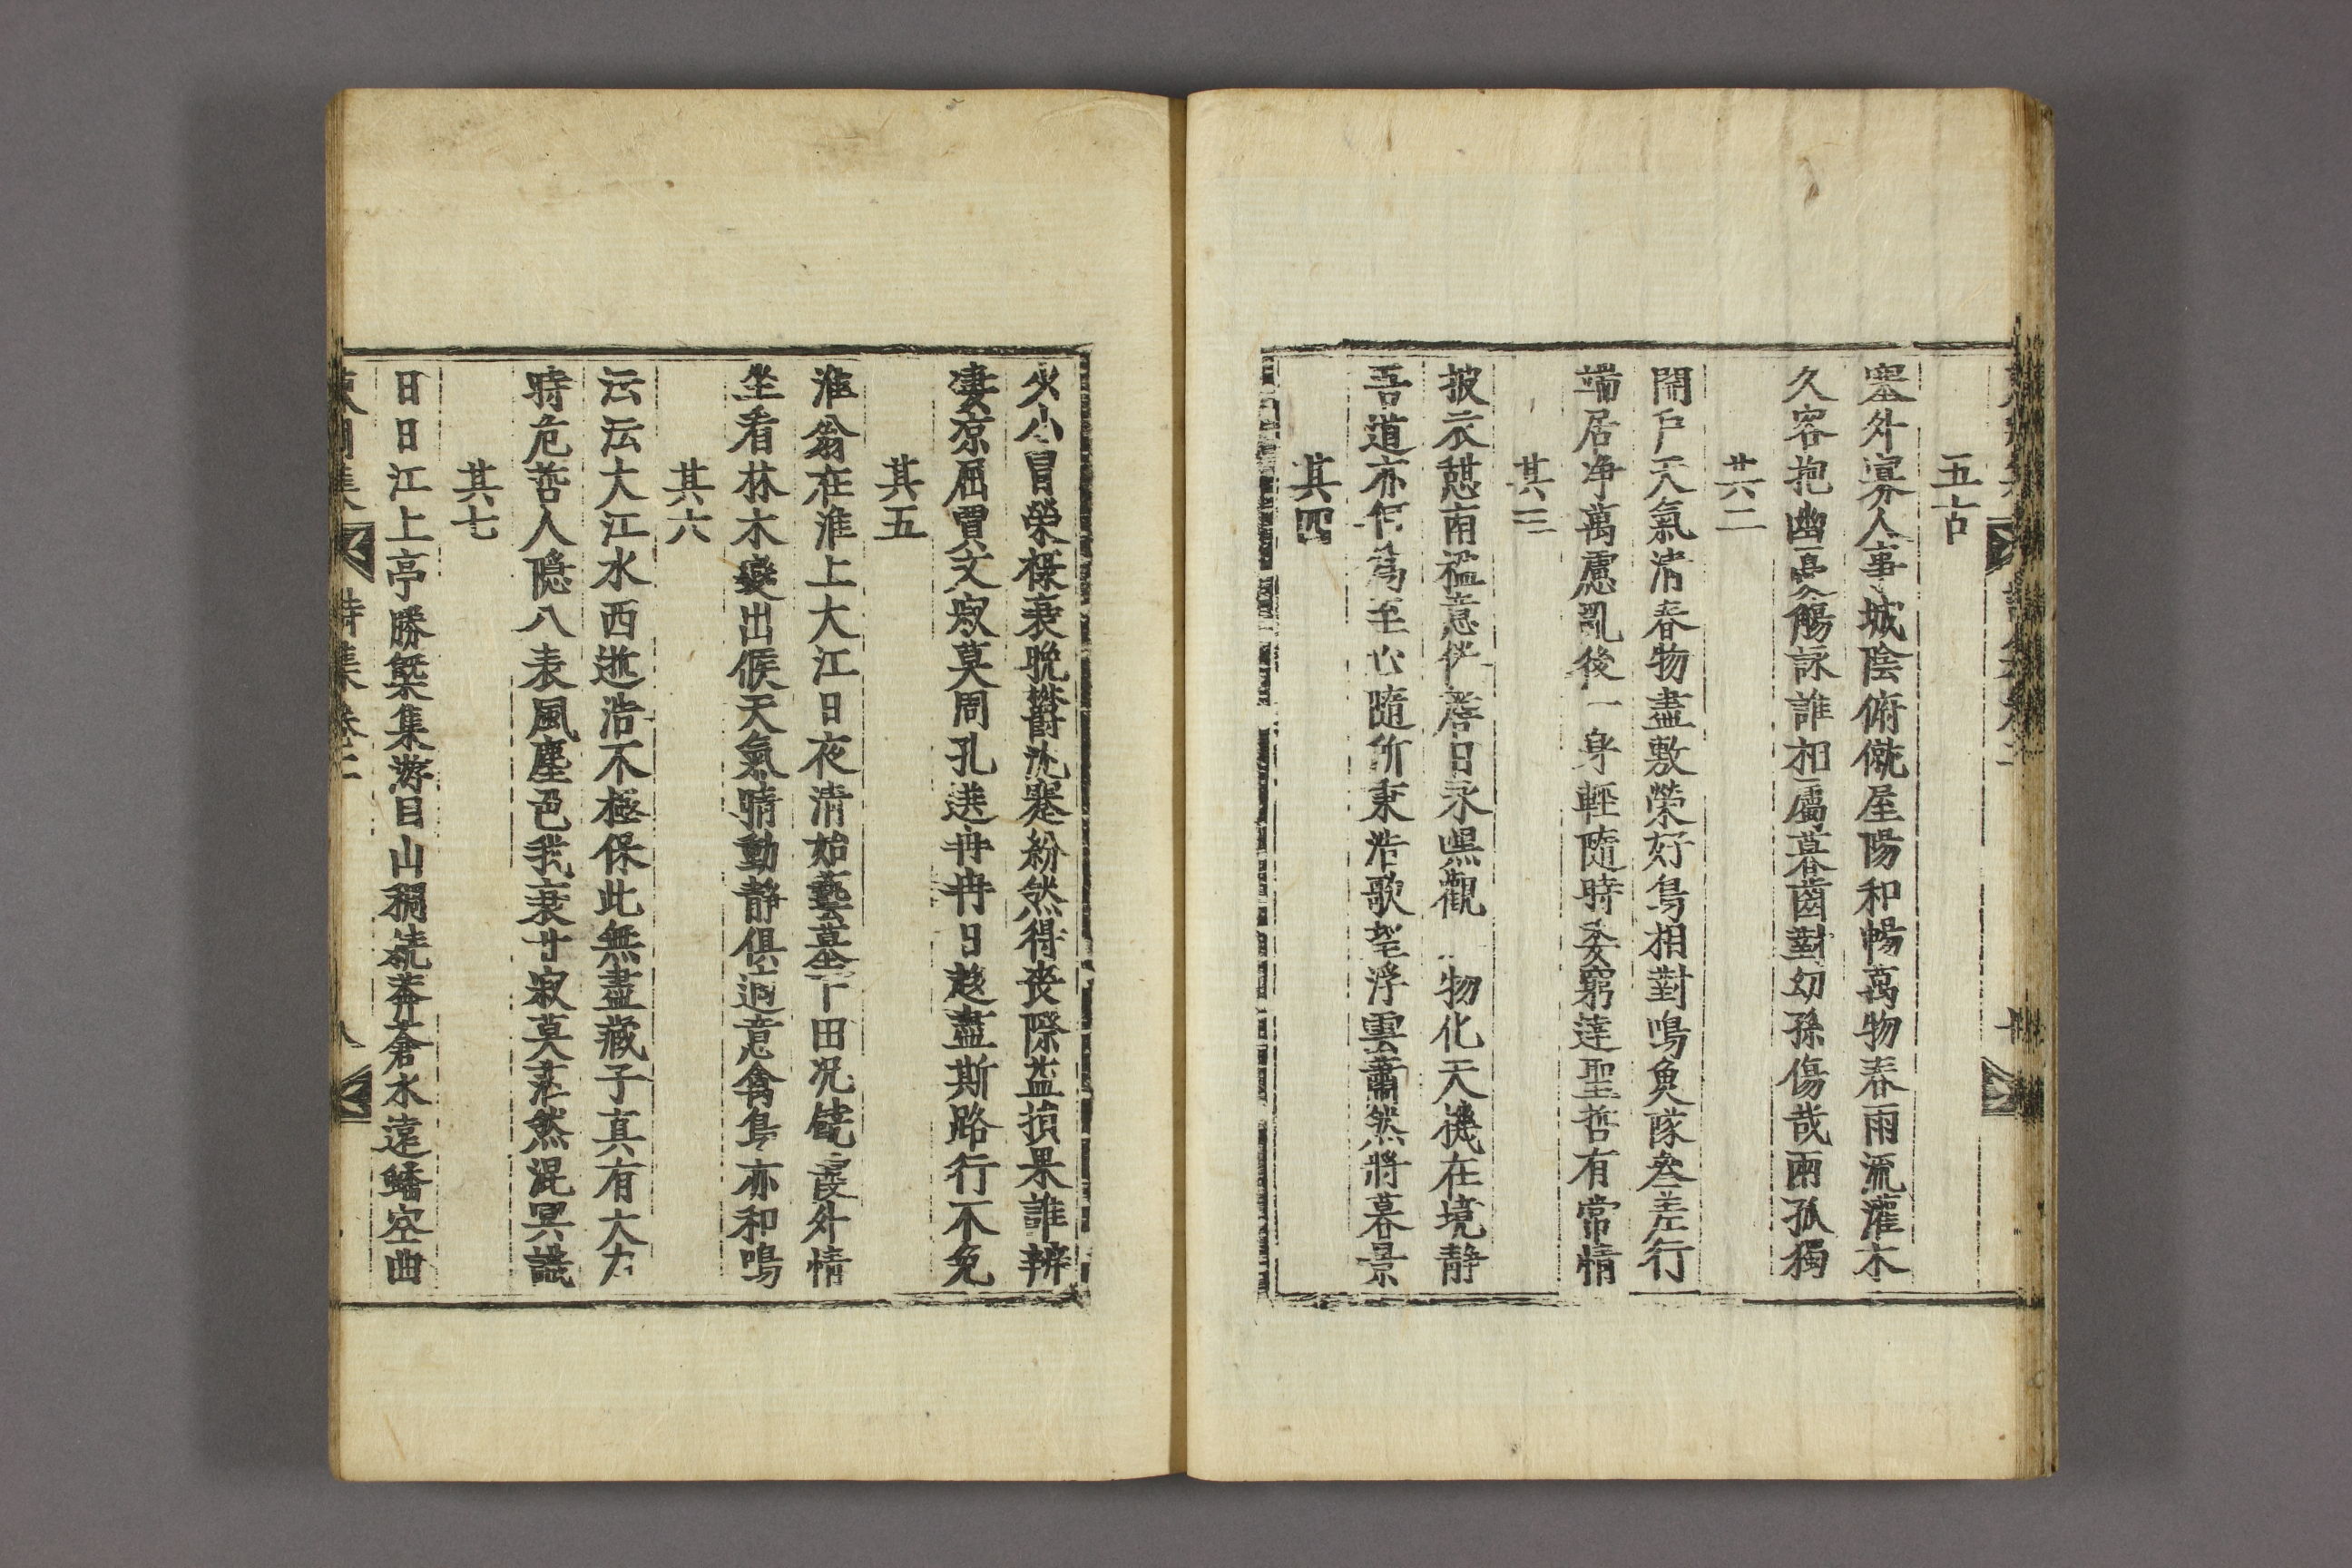 五古
塞外寡人事城陰俯僦屋陽和暢萬物春雨流灌木
久客抱幽憂觴詠誰相屬暮齒對幼孫傷哉兩孤獨
其二
閉戶天氣清春物盡敷榮好鳥相對鳴魚隊叄差行
端居净萬慮亂後一身輕隨時委窮達聖哲有常情
其三
披衣憇南楹意倦喜日永喣觀物化天機在境静
吾道亦何爲至心隨所秉浩歌望浮雲蕭然將暮景
其四
火小冒榮祿衰晩欝沈蹇紛然得丧際益損果誰辨
凄凉屈賈文寂莫周孔遠冉冉日趍盡斯路行不免
其五
淮翁在淮上大江日夜清始藝墓下田况饒霞外情
坐看林木變出候天氣晴動静俱適意禽鳥亦和鳴
其六
沄沄大江水西逝浩不極保此無盡藏子真有大力
時危哲人隱八表風塵色我衰甘寂莫茫然混冥識
其七
日日江上亭勝槩集游目山稠繞莾蒼水遠蟠空曲
詩集卷二
八